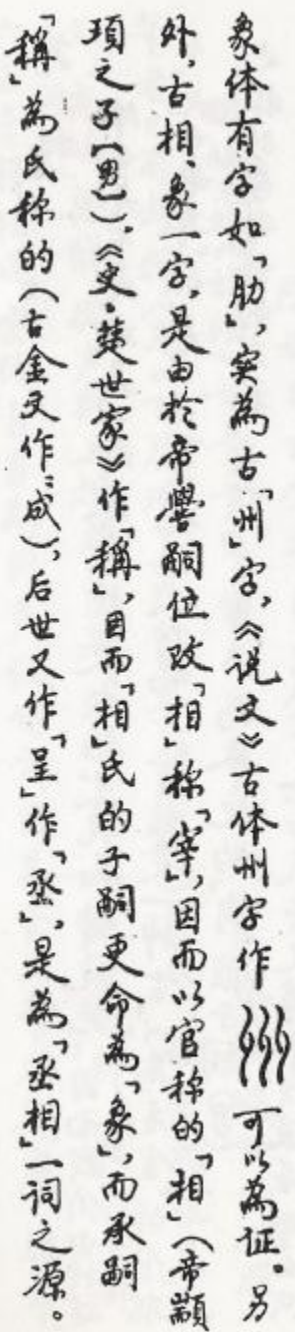 象体有字如「肋」，实為古「州」字，《说文》古体州字作 可以為证。另
外，古相、象一字，是由於帝嚳嗣位改「相」称「宰」，因而以官称的「相」（帝顓
頊之子【男】）。《史·楚世家》作「稱」，因而「相」氏的子嗣更命為「象」，而承嗣
「稱」為氏称的（古金文作：成），后世又作「呈」作「丞」，是為「丞相」一词之源。